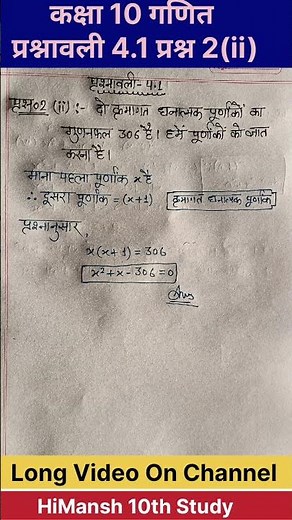 कक्षा 10 गणित
प्रश्नावली 4.1 प्रश्न 2(ii)
प्रश्नावली - 4.1
प्रश्न02 (ii) :- दो क्रमागत धनात्मक पूर्णांकों का
गुणनफल 306 है। हमें पूर्णांकों को ज्ञात
करना है।
माना पहला पूर्णांक x है
∴ दूसरा पूर्णांक = (x+1) क्रमागत धनात्मक पूर्णांक
प्रश्नानुसार,
x(x+1) = 306
x²+x-306=0
Ans
Long Video On Channel
HiMansh 10th Study